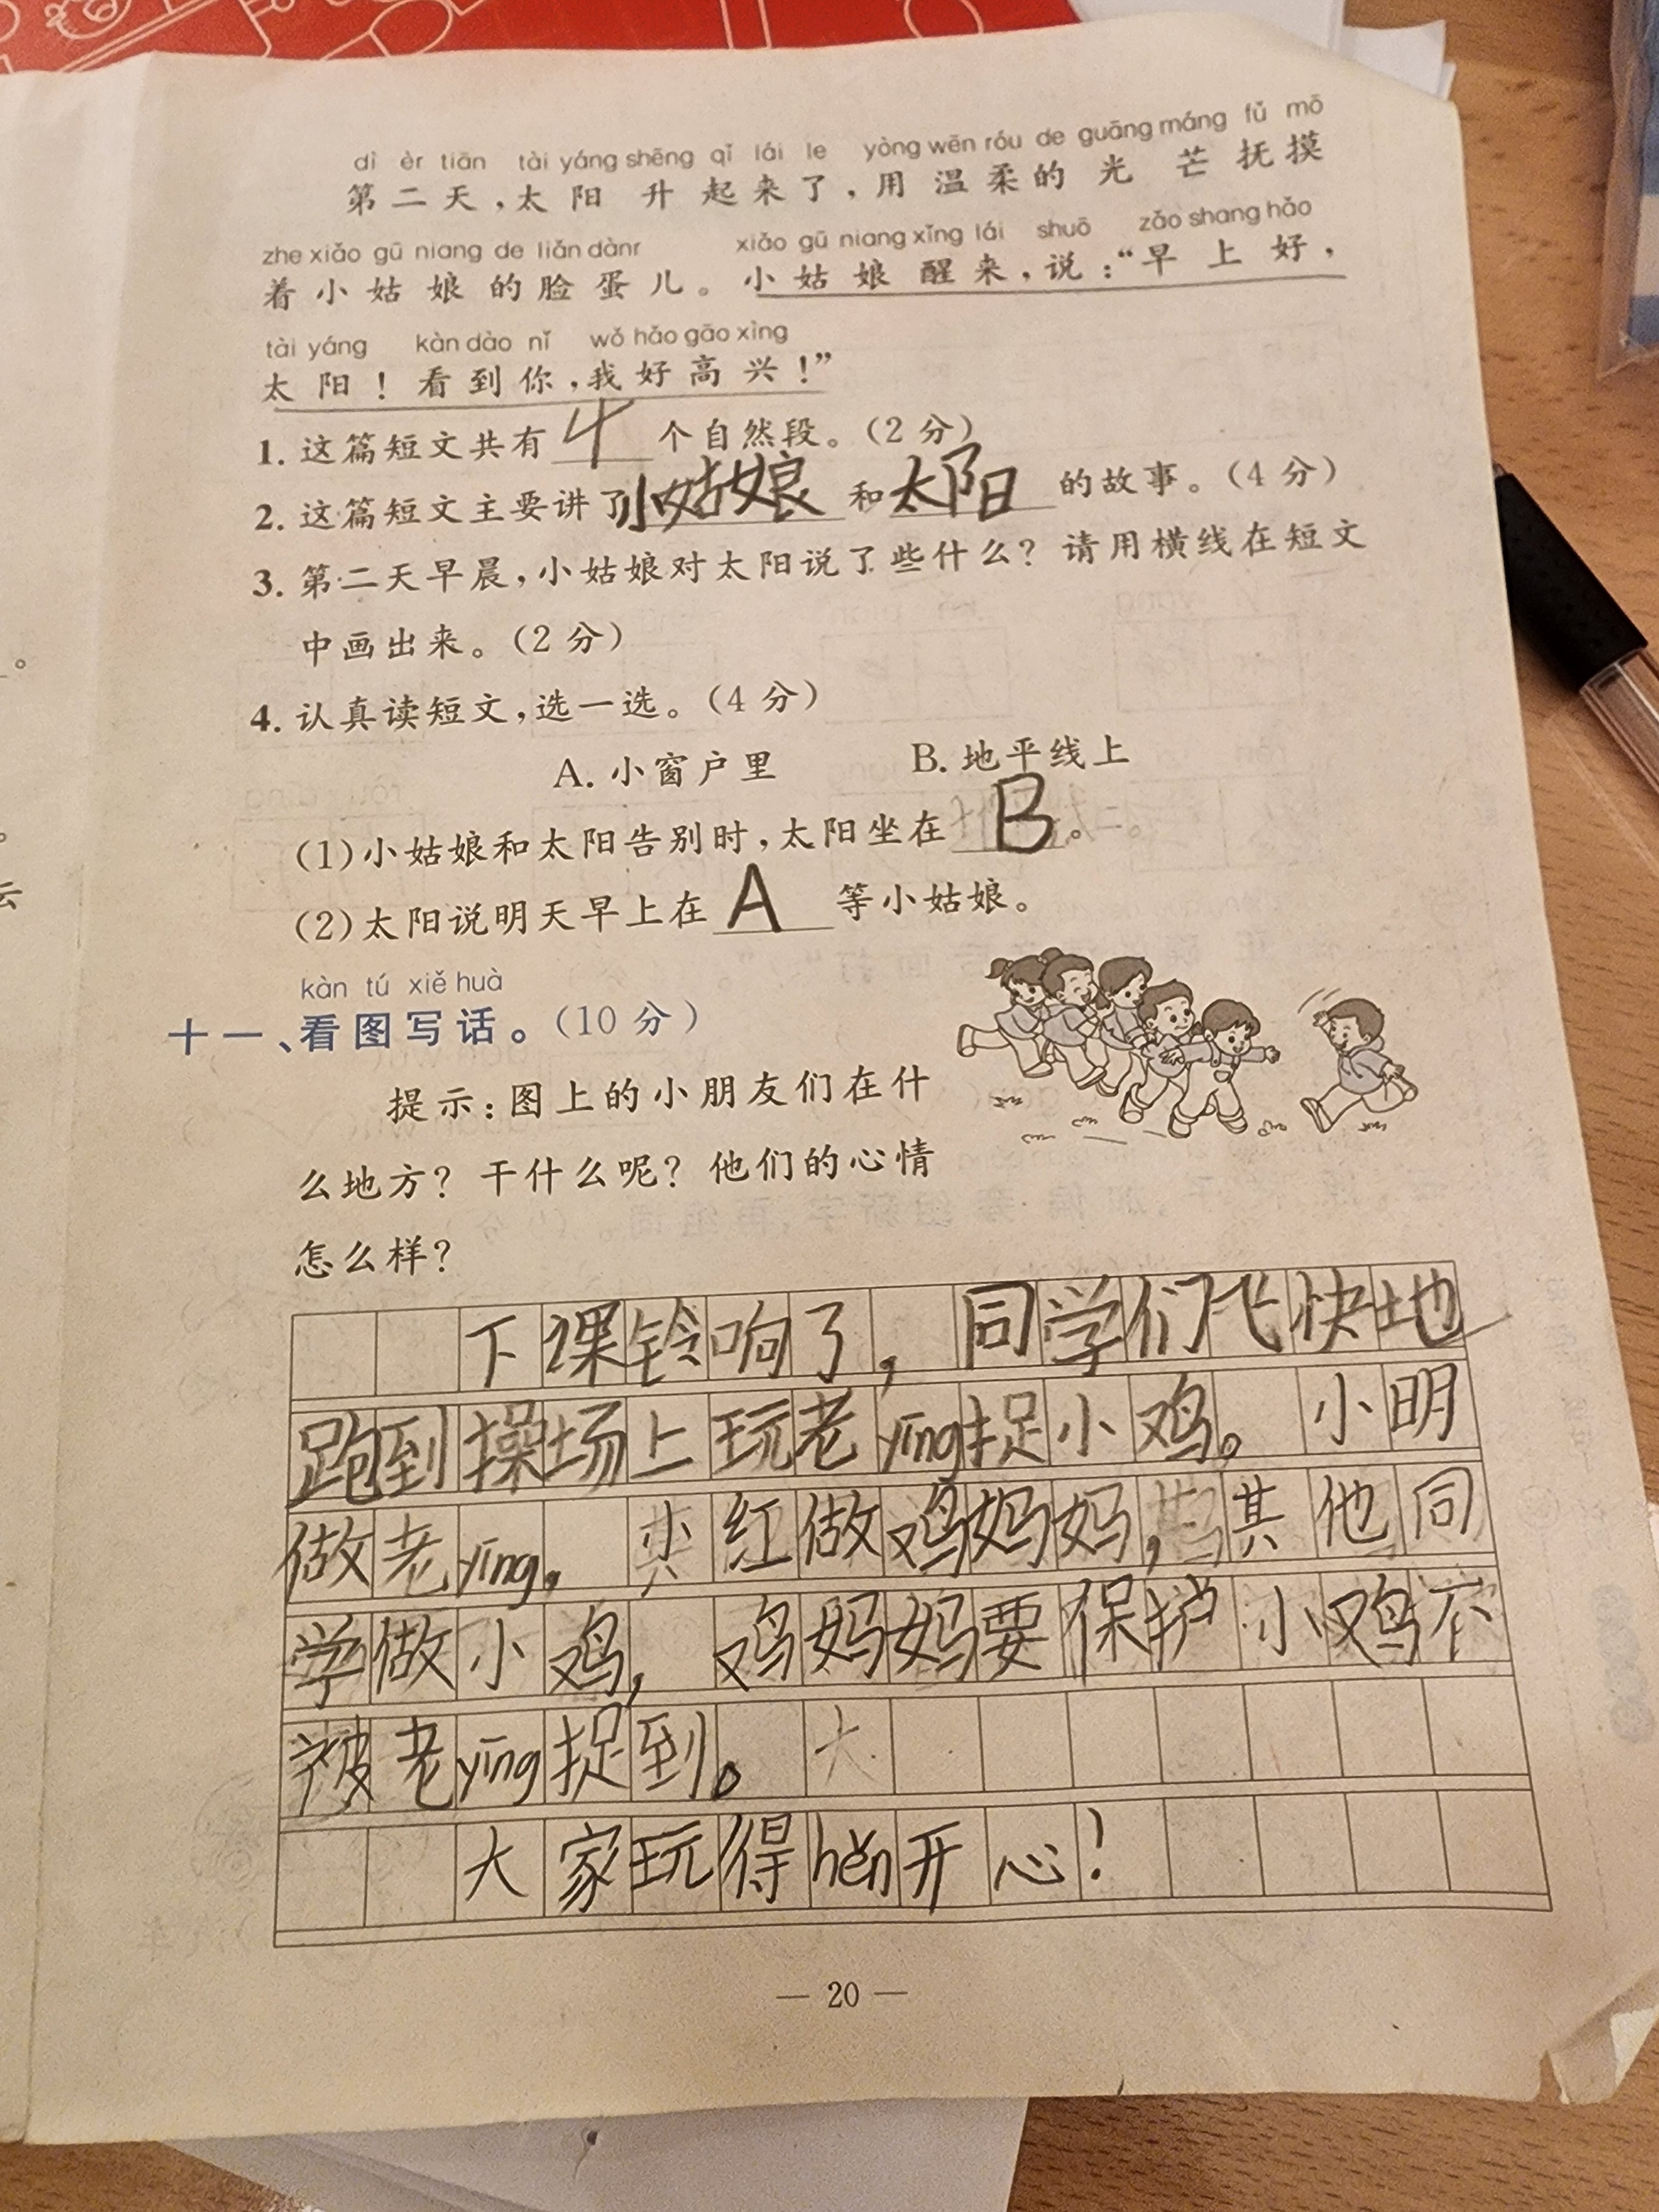 dì èr tiān tài yáng shēng qǐ lái le yòng wēn róu de guāng máng fǔ mō
第二天，太阳升起来了，用温柔的光芒抚摸
zhe xiǎo gū niang de liǎn dànr xiǎo gū niang xǐng lái shuō zǎo shang hǎo
着小姑娘的脸蛋儿。小姑娘醒来，说：“早上好，
tài yáng kàn dào nǐ wǒ hǎo gāo xìng
太阳！看到你，我好高兴！”
1. 这篇短文共有4个自然段。（2分）
2. 这篇短文主要讲了小姑娘和太阳的故事。（4分）
3. 第二天早晨，小姑娘对太阳说了些什么？请用横线在短文
中画出来。（2分）
4. 认真读短文，选一选。（4分）
A. 小窗户里 B. 地平线上
(1)小姑娘和太阳告别时，太阳坐在B。
(2)太阳说明天早上在A等小姑娘。
kàn tú xiě huà
十一、看图写话。（10分）
提示：图上的小朋友们在什
么地方？干什么呢？他们的心情
怎么样？
下课铃响了，同学们飞快地
跑到操场上玩老yīng捉小鸡。小明
做老yīng，小红做鸡妈妈，其他同
学做小鸡，鸡妈妈要保护小鸡不
被老yīng捉到。大
大家玩得hěn开心！
— 20 —